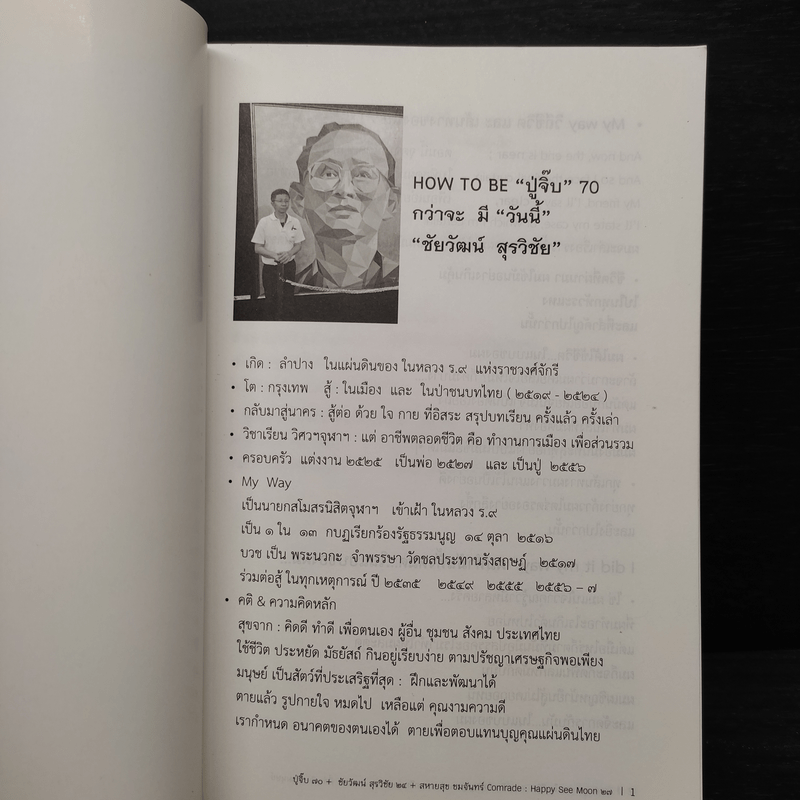 HOW TO BE “ปู่จิ๊บ” 70
กว่าจะ มี “วันนี้”
“ชัยวัฒน์ สุรวิชัย”
• เกิด : ลำปาง ในแผ่นดินของ ในหลวง ร.๙ แห่งราชวงศ์จักรี
• โต : กรุงเทพ สู้ : ในเมือง และ ในป่าชนบทไทย ( ๒๕๑๙ - ๒๕๒๔ )
• กลับมาสู่นาคร : สู้ต่อ ด้วย ใจ กาย ที่อิสระ สรุปบทเรียน ครั้งแล้ว ครั้งเล่า
• วิชาเรียน วิศวฯจุฬาฯ : แต่ อาชีพตลอดชีวิต คือ ทำงานการเมือง เพื่อส่วนรวม
• ครอบครัว แต่งงาน ๒๕๒๕ เป็นพ่อ ๒๕๒๗ และ เป็นปู่ ๒๕๕๖
• My Way
เป็นนายกสโมสรนิสิตจุฬาฯ เข้าเฝ้า ในหลวง ร.๙
เป็น ๑ ใน ๑๓ กบฏเรียกร้องรัฐธรรมนูญ ๑๔ ตุลา ๒๕๑๖
บวช เป็น พระนวกะ จำพรรษา วัดชลประทานรังสฤษฎ์ ๒๕๑๗
ร่วมต่อสู้ ในทุกเหตุการณ์ ปี ๒๕๓๕ ๒๕๔๙ ๒๕๕๕ ๒๕๕๖ – ๗
• คติ & ความคิดหลัก
สุขจาก : คิดดี ทำดี เพื่อตนเอง ผู้อื่น ชุมชน สังคม ประเทศไทย
ใช้ชีวิต ประหยัด มัธยัสถ์ กินอยู่เรียบง่าย ตามปรัชญาเศรษฐกิจพอเพียง
มนุษย์ เป็นสัตว์ที่ประเสริฐที่สุด : ฝึกและพัฒนาได้
ตายแล้ว รูปกายใจ หมดไป เหลือแต่ คุณงามความดี
เรากำหนด อนาคตของตนเองได้ ตายเพื่อตอบแทนบุญคุณแผ่นดินไทย
ปู่จิ๊บ ๗๐ + ชัยวัฒน์ สุรวิชัย ๒๔ + สหายสุข ชมจันทร์ Comrade : Happy See Moon ๒๗ | 1